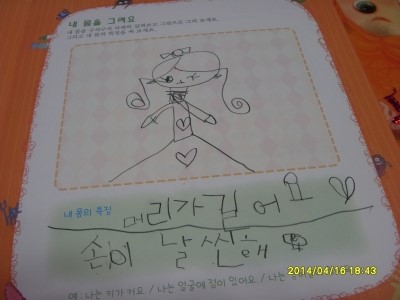 내 몸을 그려요
내 몸의 특징
머리가길어요
손이 날씬해
예 : 나는 키가 커요 / 나는 얼굴에 점이 있어요 / 나는
2014/04/16 18:43